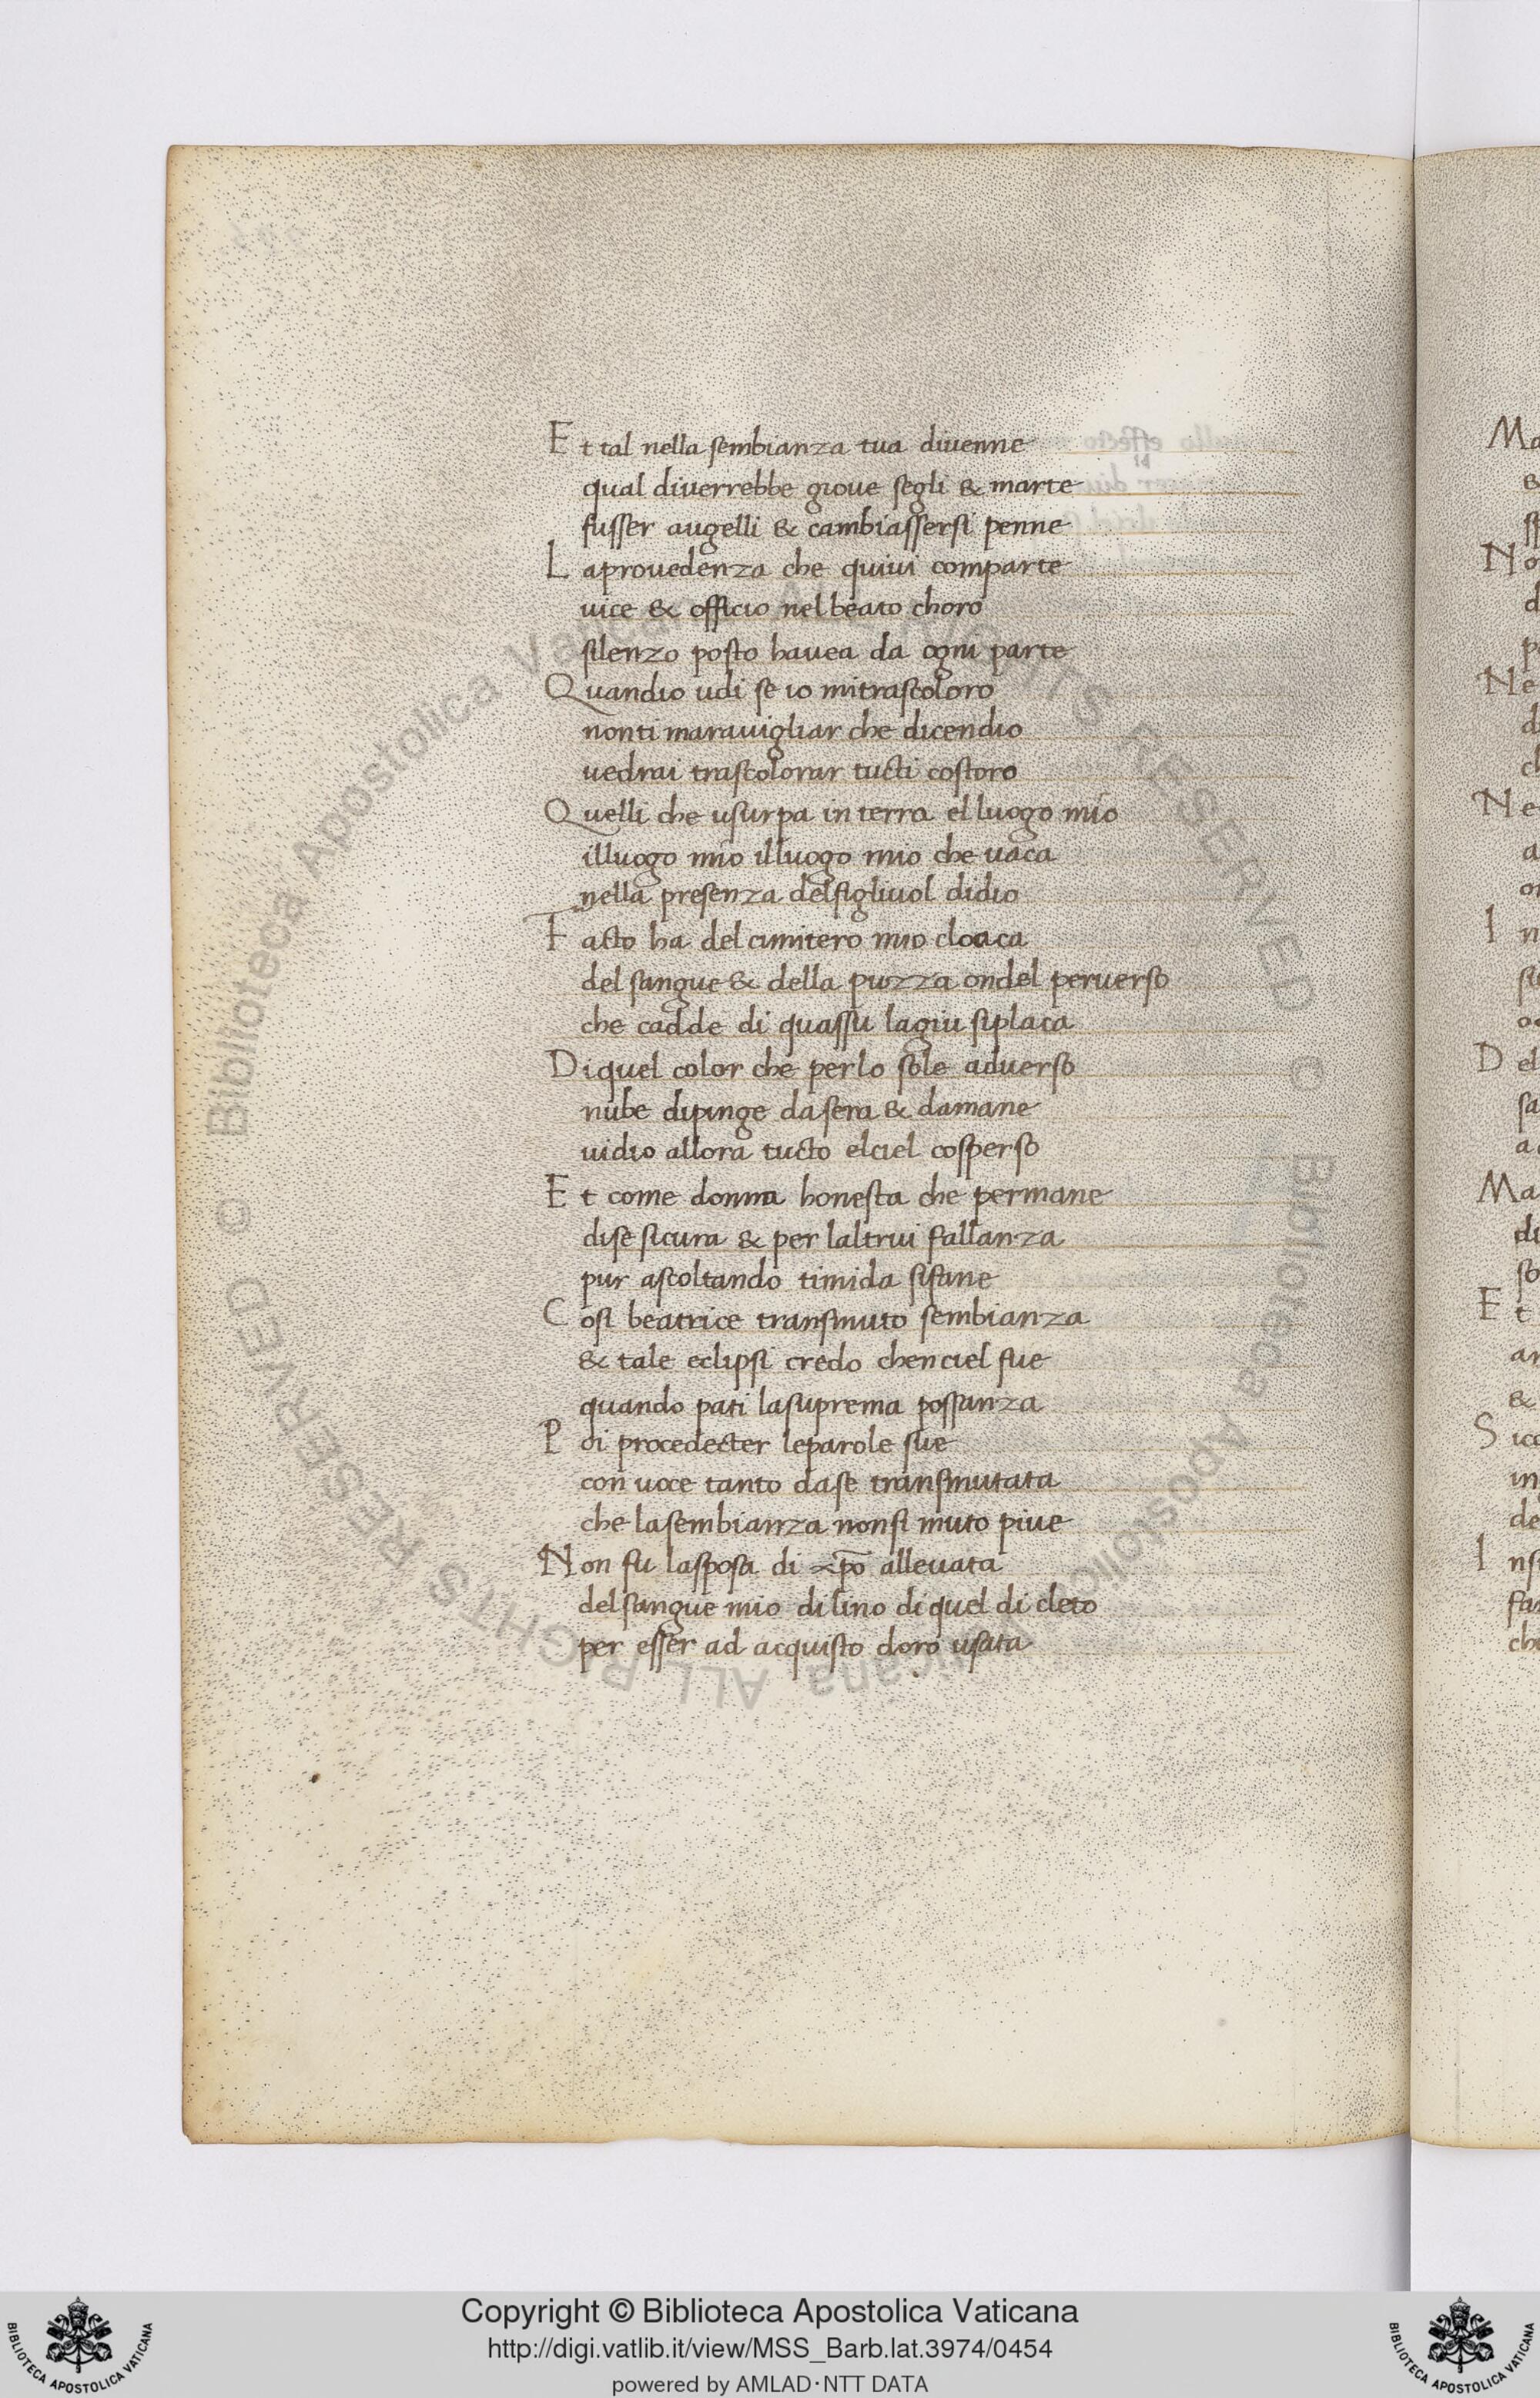 Et tal nella sembianza tua divenne
qual diverrebbe giove segli & marte
fusser augelli & cambiassersi penne
La provedenza che quivi comparte
vice & officio nel beato choro
silenzo posto havea da ogni parte
Quandio udi se io mi trascoloro
non ti maravigliar che dicendio
vedrai trascolorar tucti costoro
Quelli che usurpa in terra el luogo mio
illuogo mio illuogo mio che vaca
nella presenza del figliuol didio
Facto ha del cimitero mio cloaca
del sangue & della puzza ondel perverso
che cadde di quassu lagiu siplaca
Di quel color che per lo sole adverso
nube dipinge da sera & damane
vidio allora tucto elciel cosperso
Et come donna honesta che permane
dise sicura & per laltrui fallanza
pur ascoltando timida sifane
Cosi beatrice transmuto sembianza
& tale eclipsi credo chenciel fue
quando pati la suprema possanza
Poi procedecter le parole sue
con voce tanto da se transmutata
che la sembianza non si muto piue
Non fu la sposa di xp̄o allevata
del sangue mio di lino di quel di cleto
per esser ad acquisto doro usata
Ma
&
No
d
Ne
Ne
a
I n
D el
sa
a
Ma
di
so
E t
&
S ico
in
de
I nf
fa
che
© Biblioteca Apostolica Vaticana ALL RIGHTS RESERVED
© Biblioteca Apostolica Vaticana ALL RIGHTS RESERVED
Copyright © Biblioteca Apostolica Vaticana
http://digi.vatlib.it/view/MSS_Barb.lat.3974/0454
powered by AMLAD·NTT DATA
BIBLIOTECA APOSTOLICA VATICANA
BIBLIOTECA APOSTOLICA VATICANA